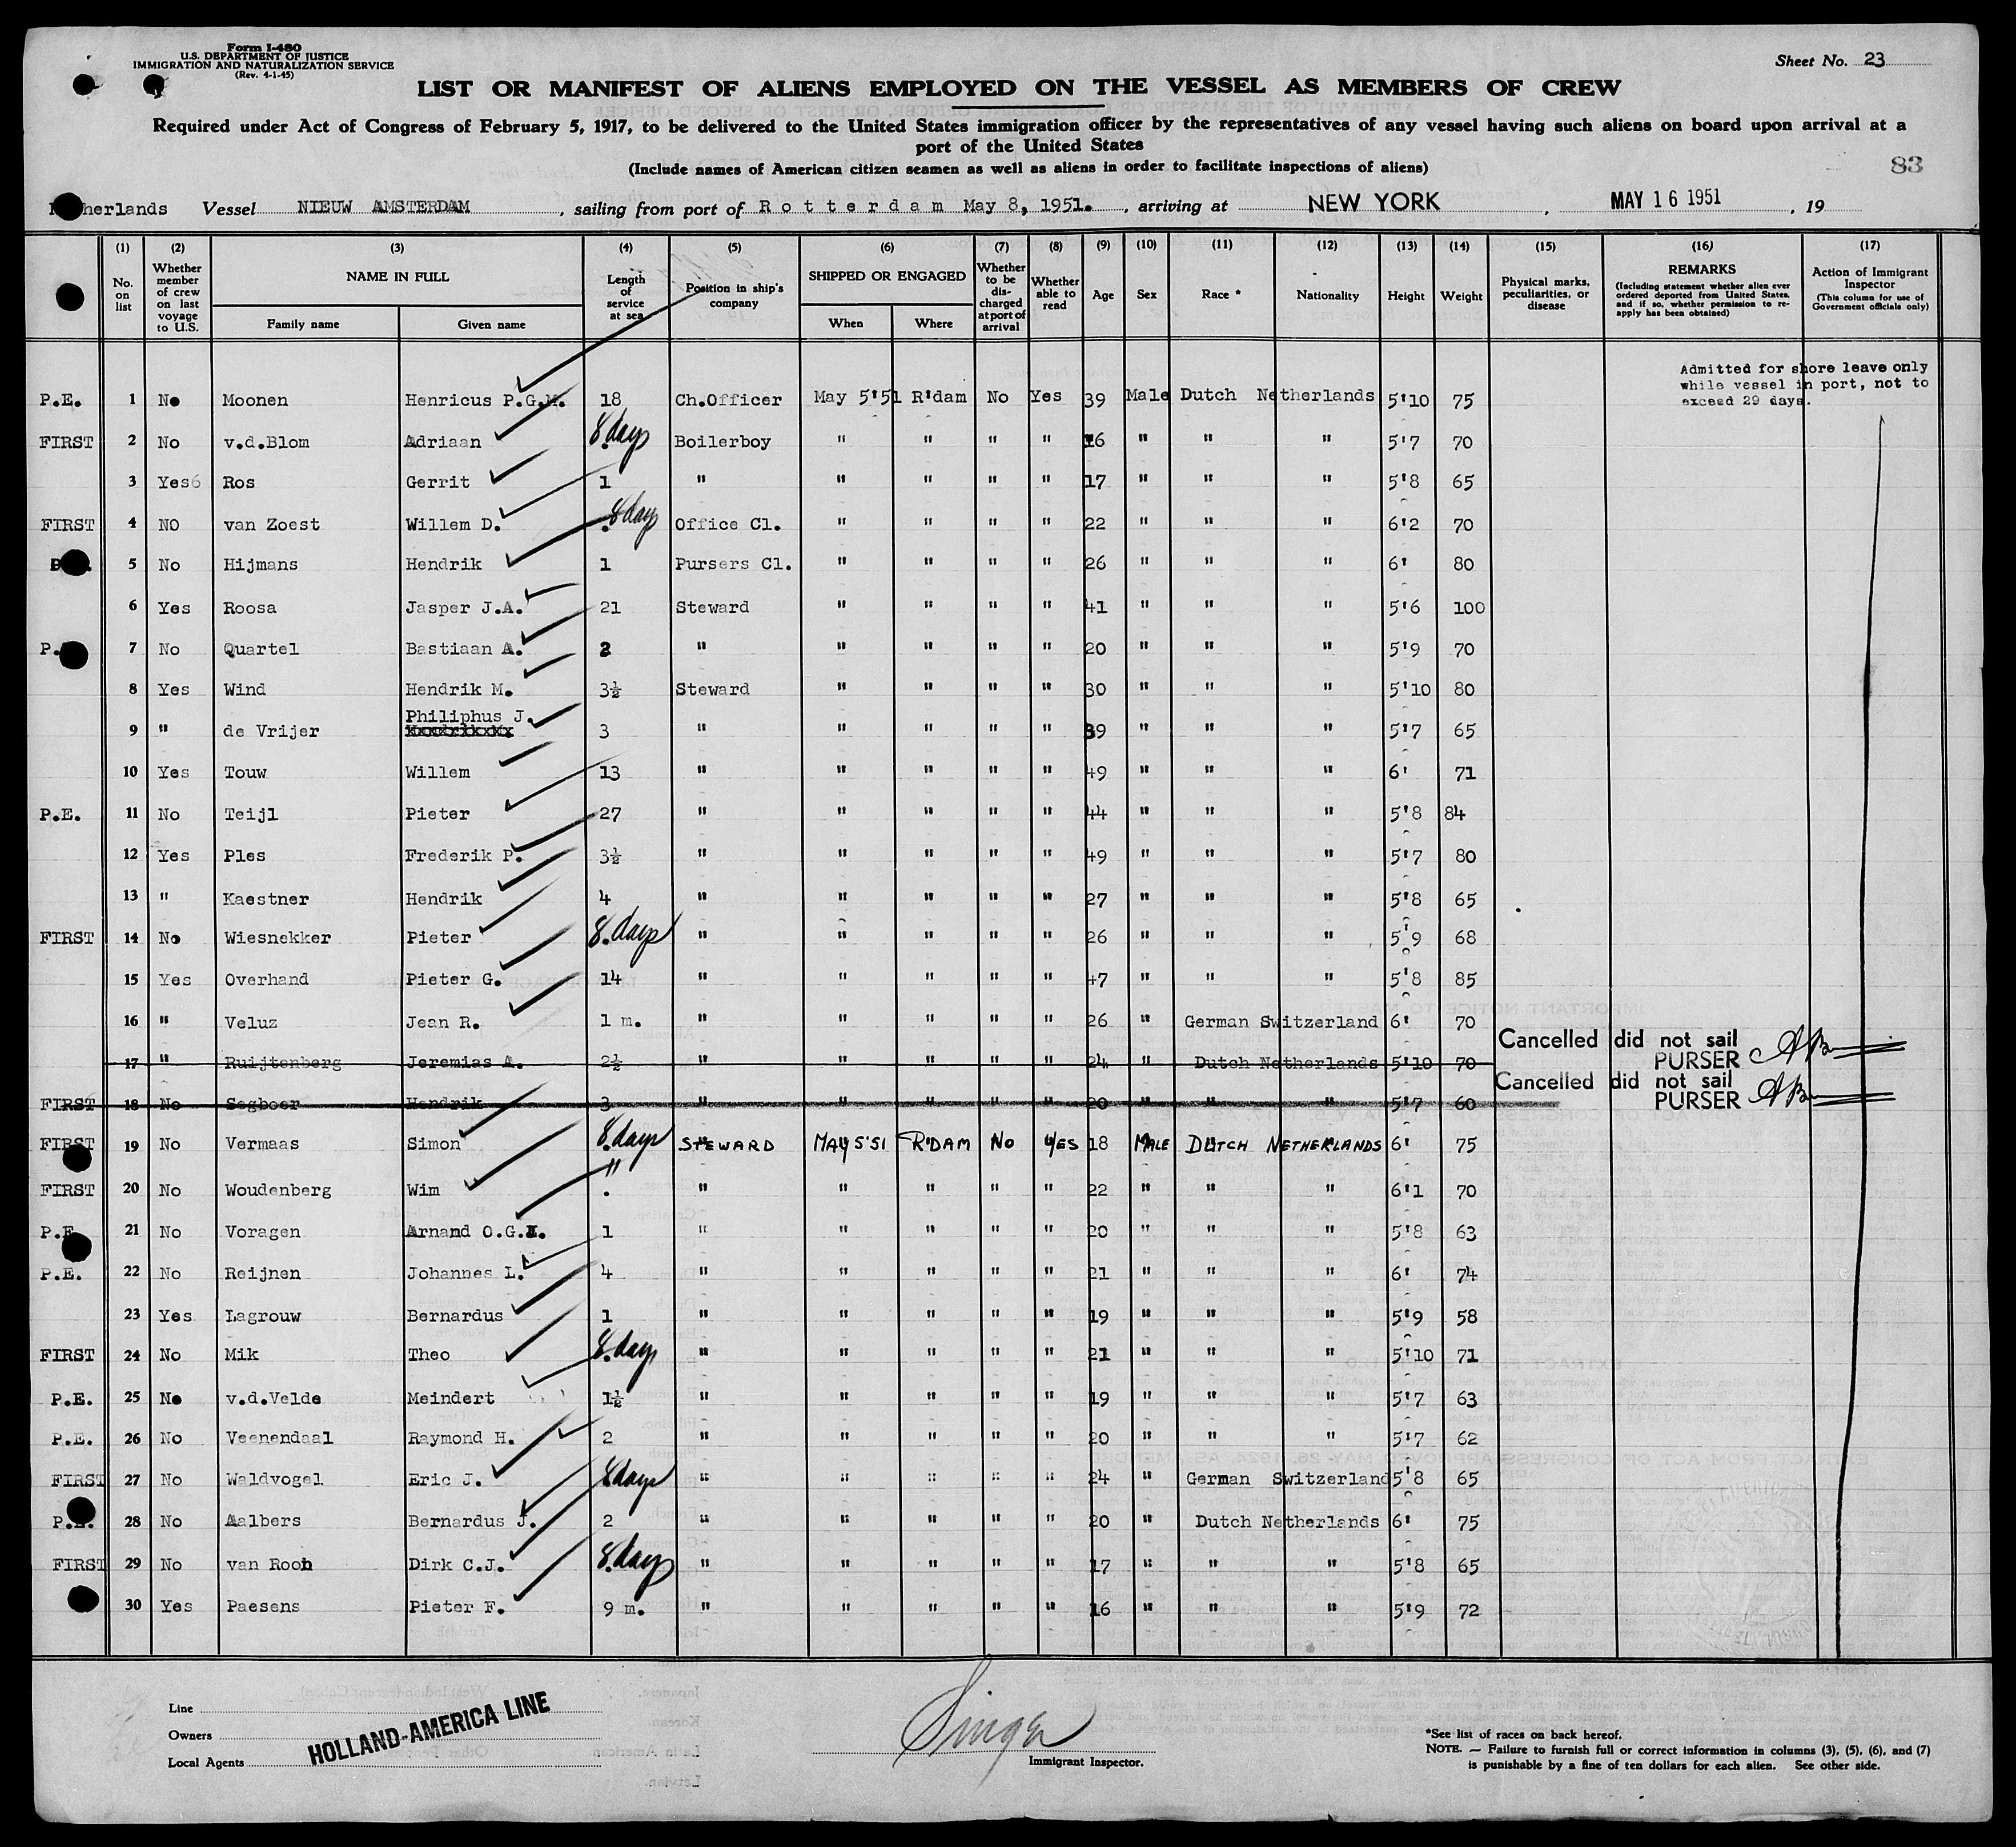 Form I-480
U.S. DEPARTMENT OF JUSTICE
IMMIGRATION AND NATURALIZATION SERVICE
(Rev. 4-1-45)
Sheet No. 23
LIST OR MANIFEST OF ALIENS EMPLOYED ON THE VESSEL AS MEMBERS OF CREW
Required under Act of Congress of February 5, 1917, to be delivered to the United States immigration officer by the representatives of any vessel having such aliens on board upon arrival at a
port of the United States
(Include names of American citizen seamen as well as aliens in order to facilitate inspections of aliens)
83
herlands Vessel NIEUW AMSTERDAM , sailing from port of Rotterdam May 8, 1951. , arriving at NEW YORK , MAY 16 1951 , 19
(1) (2) (3) (4) (5) (6) (7) (8) (9) (10) (11) (12) (13) (14) (15) (16) (17)
No. on list
Whether member of crew on last voyage to U.S.
NAME IN FULL
Family name Given name
Length of service at sea
Position in ship's company
SHIPPED OR ENGAGED
When Where
Whether to be discharged at port of arrival
Whether able to read
Age
Sex
Race *
Nationality
Height
Weight
Physical marks, peculiarities, or disease
REMARKS
(Including statement whether alien ever ordered deported from United States, and if so, whether permission to re-apply has been obtained)
Action of Immigrant Inspector
(This column for use of Government officials only)
Admitted for shore leave only
while vessel in port, not to
exceed 29 days.
P.E. 1 No Moonen Henricus P.G.M. 18 Ch.Officer May 5'51 R'dam No Yes 39 Male Dutch Netherlands 5'10 75
FIRST 2 No v.d.Blom Adriaan 8 days Boilerboy " " " " 16 " " " 5'7 70
3 Yes6 Ros Gerrit 1 " " " " " 17 " " " 5'8 65
FIRST 4 NO van Zoest Willem D. 8 days Office Cl. " " " " 22 " " " 6'2 70
5 No Hijmans Hendrik 1 Pursers Cl. " " " " 26 " " " 6' 80
6 Yes Roosa Jasper J.A. 21 Steward " " " " 41 " " " 5'6 100
P. 7 No Quartel Bastiaan A. 2 " " " " " 20 " " " 5'9 70
8 Yes Wind Hendrik M. 3½ Steward " " " " 30 " " " 5'10 80
9 " de Vrijer Philiphus J. 3 " " " " " 39 " " " 5'7 65
10 Yes Touw Willem 13 " " " " " 49 " " " 6' 71
P.E. 11 No Teijl Pieter 27 " " " " " 44 " " " 5'8 84
12 Yes Ples Frederik P. 3½ " " " " " 49 " " " 5'7 80
13 " Kaestner Hendrik 4 " " " " " 27 " " " 5'8 65
FIRST 14 No Wiesnekker Pieter 8 days " " " " " 26 " " " 5'9 68
15 Yes Overhand Pieter G. 14 " " " " " 47 " " " 5'8 85
16 " Veluz Jean R. 1 m. " " " " " 26 " German Switzerland 6' 70
Cancelled did not sail
PURSER
17 " Ruijtenberg Jeremias A. 2½ " " " " " 24 " Dutch Netherlands 5'10 70
Cancelled did not sail
PURSER
FIRST 18 No Segboer Hendrik 3 " " " " " 20 " " " 5'7 60
FIRST 19 No Vermaas Simon 8 days STEWARD MAY 5'51 R'DAM No YES 18 MALE DUTCH NETHERLANDS 6' 75
FIRST 20 No Woudenberg Wim " " " " " " 22 " " " 6'1 70
P.E. 21 No Voragen Arnand O.G. 1 " " " " " 20 " " " 5'8 63
P.E. 22 No Reijnen Johannes L. 4 " " " " " 21 " " " 6' 74
23 Yes Lagrouw Bernardus 1 " " " " " 19 " " " 5'9 58
FIRST 24 No Mik Theo 8 days " " " " " 21 " " " 5'10 71
P.E. 25 No v.d.Velde Meindert 1½ " " " " " 19 " " " 5'7 63
P.E. 26 No Veenendaal Raymond H. 2 " " " " " 20 " " " 5'7 62
FIRST 27 No Waldvogel Eric J. 8 days " " " " " 24 " German Switzerland 5'8 65
P.E. 28 No Aalbers Bernardus J. 2 " " " " " 20 " Dutch Netherlands 6' 75
FIRST 29 No van Rooh Dirk C.J. 8 days " " " " " 17 " " " 5'8 65
30 Yes Paesens Pieter F. 9 m. " " " " " 16 " " " 5'9 72
Line
Owners
Local Agents
HOLLAND-AMERICA LINE
Singer
Immigrant Inspector.
*See list of races on back hereof.
NOTE. — Failure to furnish full or correct information in columns (3), (5), (6), and (7)
is punishable by a fine of ten dollars for each alien. See other side.